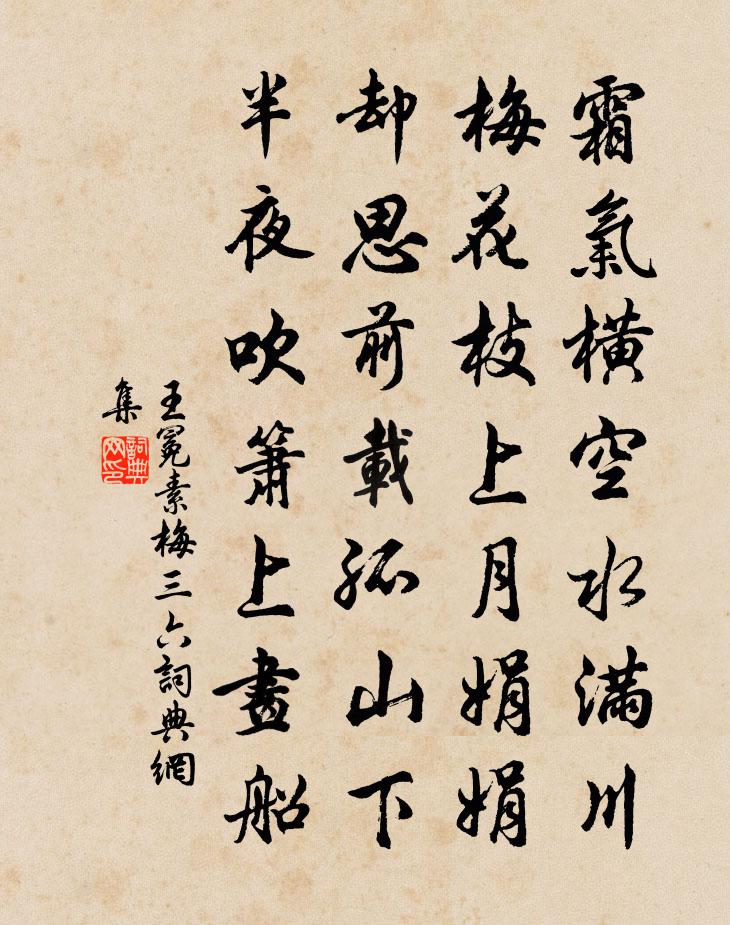 霜氣橫空水滿川
梅花枝上月娟娟
却思前載孤山下
半夜吹簫上畫船
王冕素梅三六詞典網
集
詞典網印